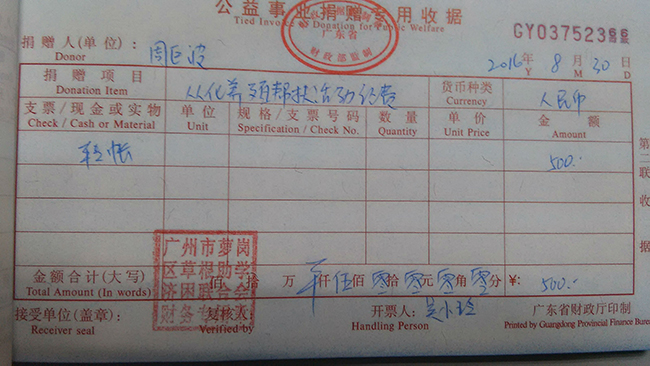 公益事业捐赠专用收据
Tied Invoice Donation for Public Welfare
广东省
财政部监制
GY03752366
捐赠人(单位): 周巨波
Donor
2016年 8月 30日
Y M D
捐赠项目 从化弟项帮扶活动经费 货币种类 人民币
Donation Item Currency
支票/现金或实物 单位 规格/支票号码 数量 单价 金额
Check / Cash or Material Unit Specification / Check No. Quantity Unit Price Amount
500.
第二联 收据
广州市萝岗
区草根助学
济困联合会
财务专用章
金额合计(大写) 佰 拾 万 仟 伍佰 零拾 零元 零角 零分 ¥: 500.
Total Amount (In words)
接受单位(盖章): 复核人: 开票人: 吴小玲 广东省财政厅印制
Receiver seal Verified by Handling Person Printed by Guangdong Provincial Finance Bureau